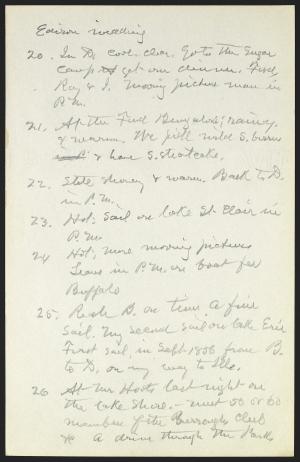 Edison wedding
20. In D, cool, clear. Go to the sugar
camp & get our dinner. Ford,
Ray & I. Moving picture man in
P.M.
21. At the Ford Bungalow; rainy
& warm. We pick wild S. berries
& have S. shortcake.
22. Still showery & warm. Back to D.
in P.M.
23. Hot; sail on lake St. Clair in
P.M.
24 Hot; more moving pictures
Leave in P.M. on boat for
Buffalo
25. Reach B. on time a fine
sail. My second sail on lake Erie
First sail in Sept. 1856 from B.
to D, on my way to Ills.
26 At Mr Hoots last night on
the lake shore. - meet 50 or 60
members of the Burroughs Club
A drive through the Parks